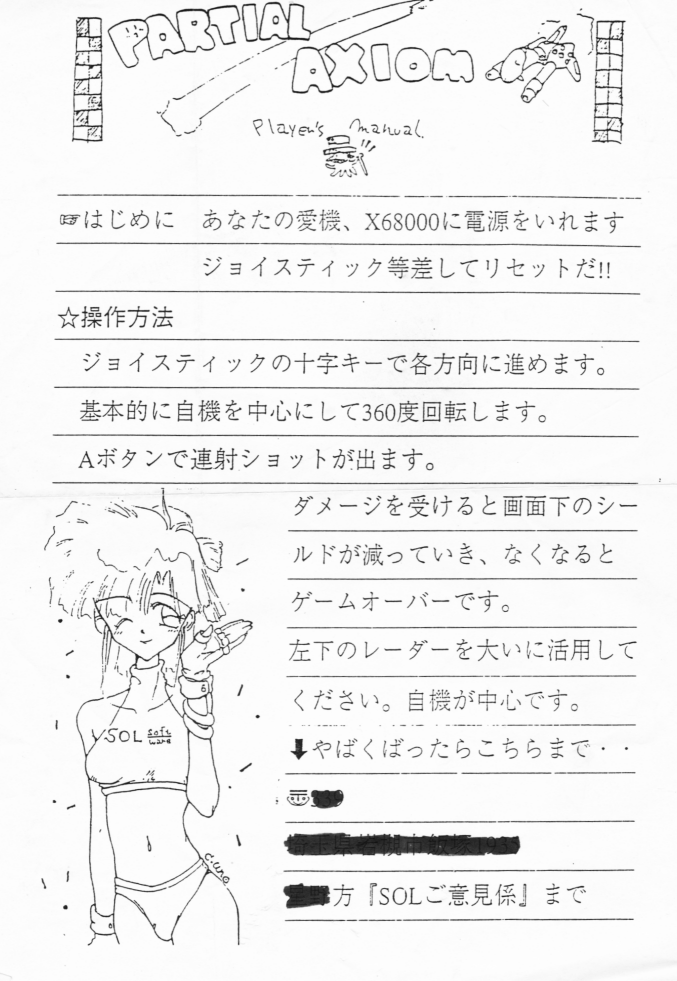 PARTIAL
AXIOM
Player's manual.
☞はじめに　あなたの愛機、X68000に電源をいれます
ジョイスティック等差してリセットだ!!
☆操作方法
ジョイスティックの十字キーで各方向に進めます。
基本的に自機を中心にして360度回転します。
Aボタンで連射ショットが出ます。
ダメージを受けると画面下のシー
ルドが減っていき、なくなると
ゲームオーバーです。
左下のレーダーを大いに活用して
ください。自機が中心です。
⬇やばくばったらこちらまで・・
〠
方『SOLご意見係』まで
SOL soft
ware
6